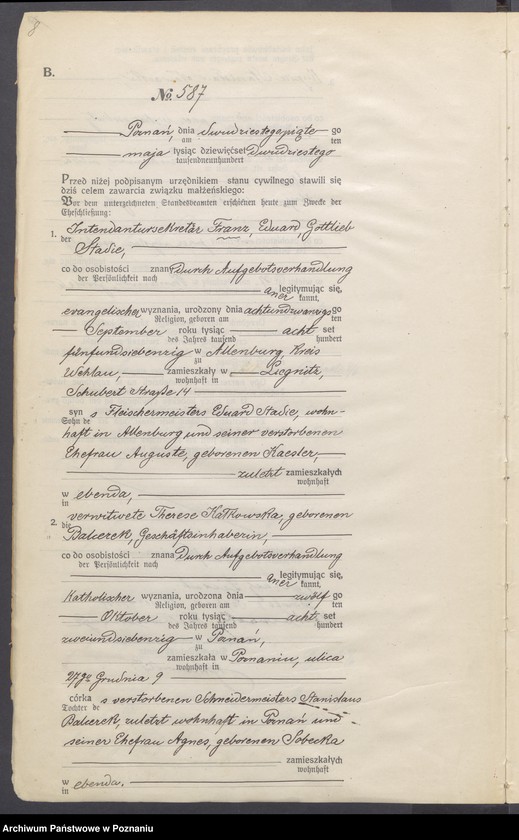 8
B.
№ 587
Poznań, dnia dwudziestegopiąte go
am ten
maja tysiąc dziewięćset dwudziestego
tausendneunhundert
Przed niżej podpisanym urzędnikiem stanu cywilnego stawili się
dziś celem zawarcia związku małżeńskiego:
Vor dem unterzeichneten Standesbeamten erschienen heute zum Zwecke der
Eheschließung:
1. Intendantursekretär Franz, Eduard, Gottlieb
der
Stadie,
co do osobistości znany Durch Aufgebotsverhandlung
der Persönlichkeit nach
legitymując się,
aner kannt,
evangelischer wyznania, urodzony dnia achtundzwanzigs go
Religion, geboren am ten
September roku tysiąc acht set
des Jahres tausend hundert
fünfundsiebenzig w Allenburg, Kreis
zu
Wehlau, zamieszkały w Liegnitz,
wohnhaft in
Schubert Straße 14
syn s Fleischermeisters Eduard Stadie, wohn-
Sohn de
haft in Allenburg und seiner verstorbenen
Ehefrau Auguste, geborenen Kaesler,
zuletzt zamieszkałych
wohnhaft
w ebenda,
in
2. verwitwete Therese Kałkowska, geborenen
die
Balcerek, Geschäftsinhaberin,
co do osobistości znana Durch Aufgebotsverhandlung
der Persönlichkeit nach
legitymując się,
aner kannt,
Katholischer wyznania, urodzona dnia zwölf go
Religion, geboren am ten
Oktober roku tysiąc acht set
des Jahres tausend hundert
zweiundsiebenzig w Poznań,
zu
zamieszkała w Poznaniu, ulica
wohnhaft in
27go Grudnia 9
córka s verstorbenen Schneidermeisters Stanislaus
Tochter de
Balcerek, zuletzt wohnhaft in Poznań und
seiner Ehefrau Agnes, geborenen Sobecka
zamieszkałych
wohnhaft
w ebenda.
in
Archiwum Państwowe w Poznaniu